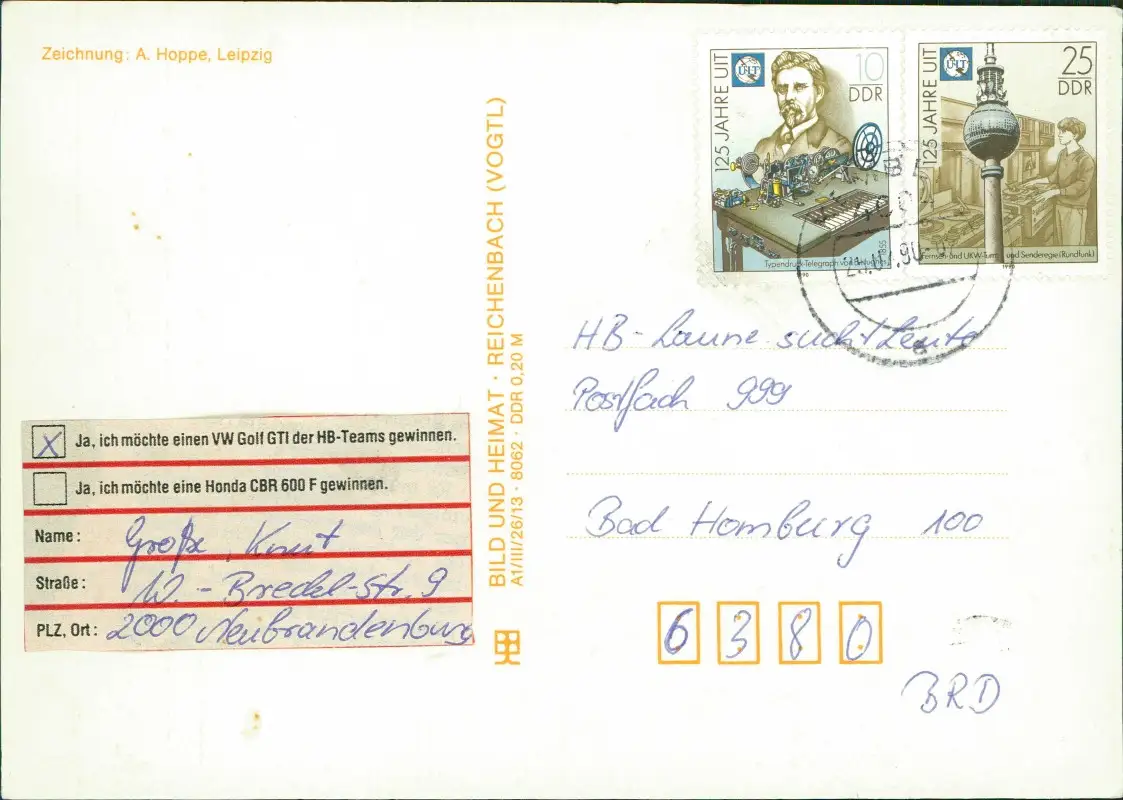 Zeichnung: A. Hoppe, Leipzig
BILD UND HEIMAT · REICHENBACH (VOGTL)
A1/III/26/13 · 8062 · DDR 0,20 M
125 JAHRE UIT
UIT
10
DDR
1855
Typendruck-Telegraph von B. Hughes
1990
125 JAHRE UIT
UIT
25
DDR
Fernseh- und UKW-Turm und Senderegie (Rundfunk)
1990
HB-Laune sucht Leute
Postfach 999
Bad Homburg 100
6380
BRD
X Ja, ich möchte einen VW Golf GTI der HB-Teams gewinnen.
Ja, ich möchte eine Honda CBR 600 F gewinnen.
Name: Große, Knut
Straße: W.-Bredel-Str. 9
PLZ, Ort: 2000 Neubrandenburg